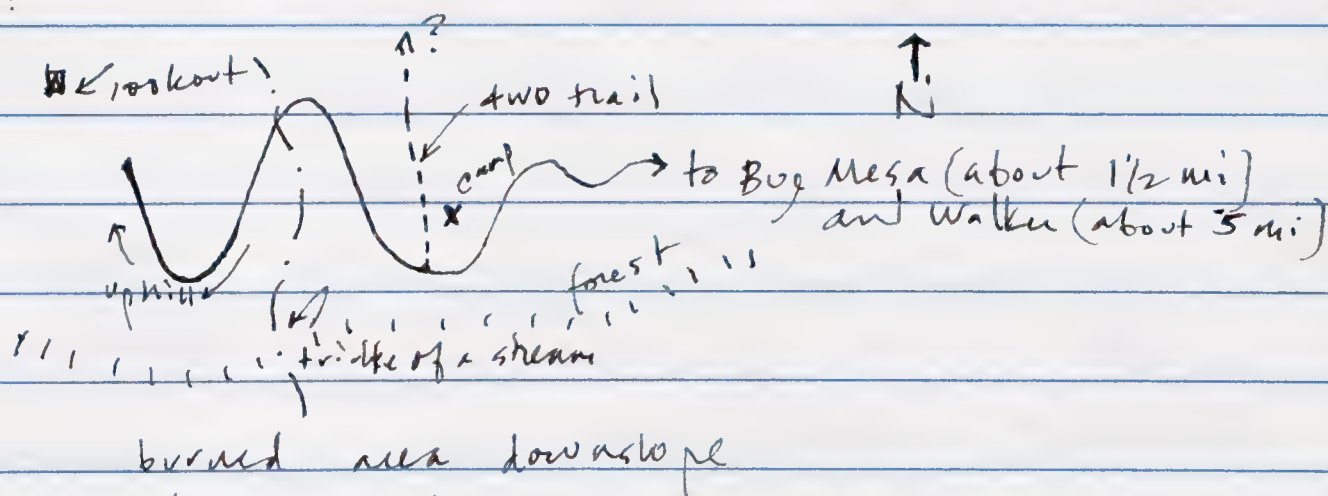 ?
lookout
4WD trail
N
camp
to Bug Mesa (about 1 1/2 mi)
and Walker (about 5 mi)
uphill
forest
trickle of a stream
burned area downslope